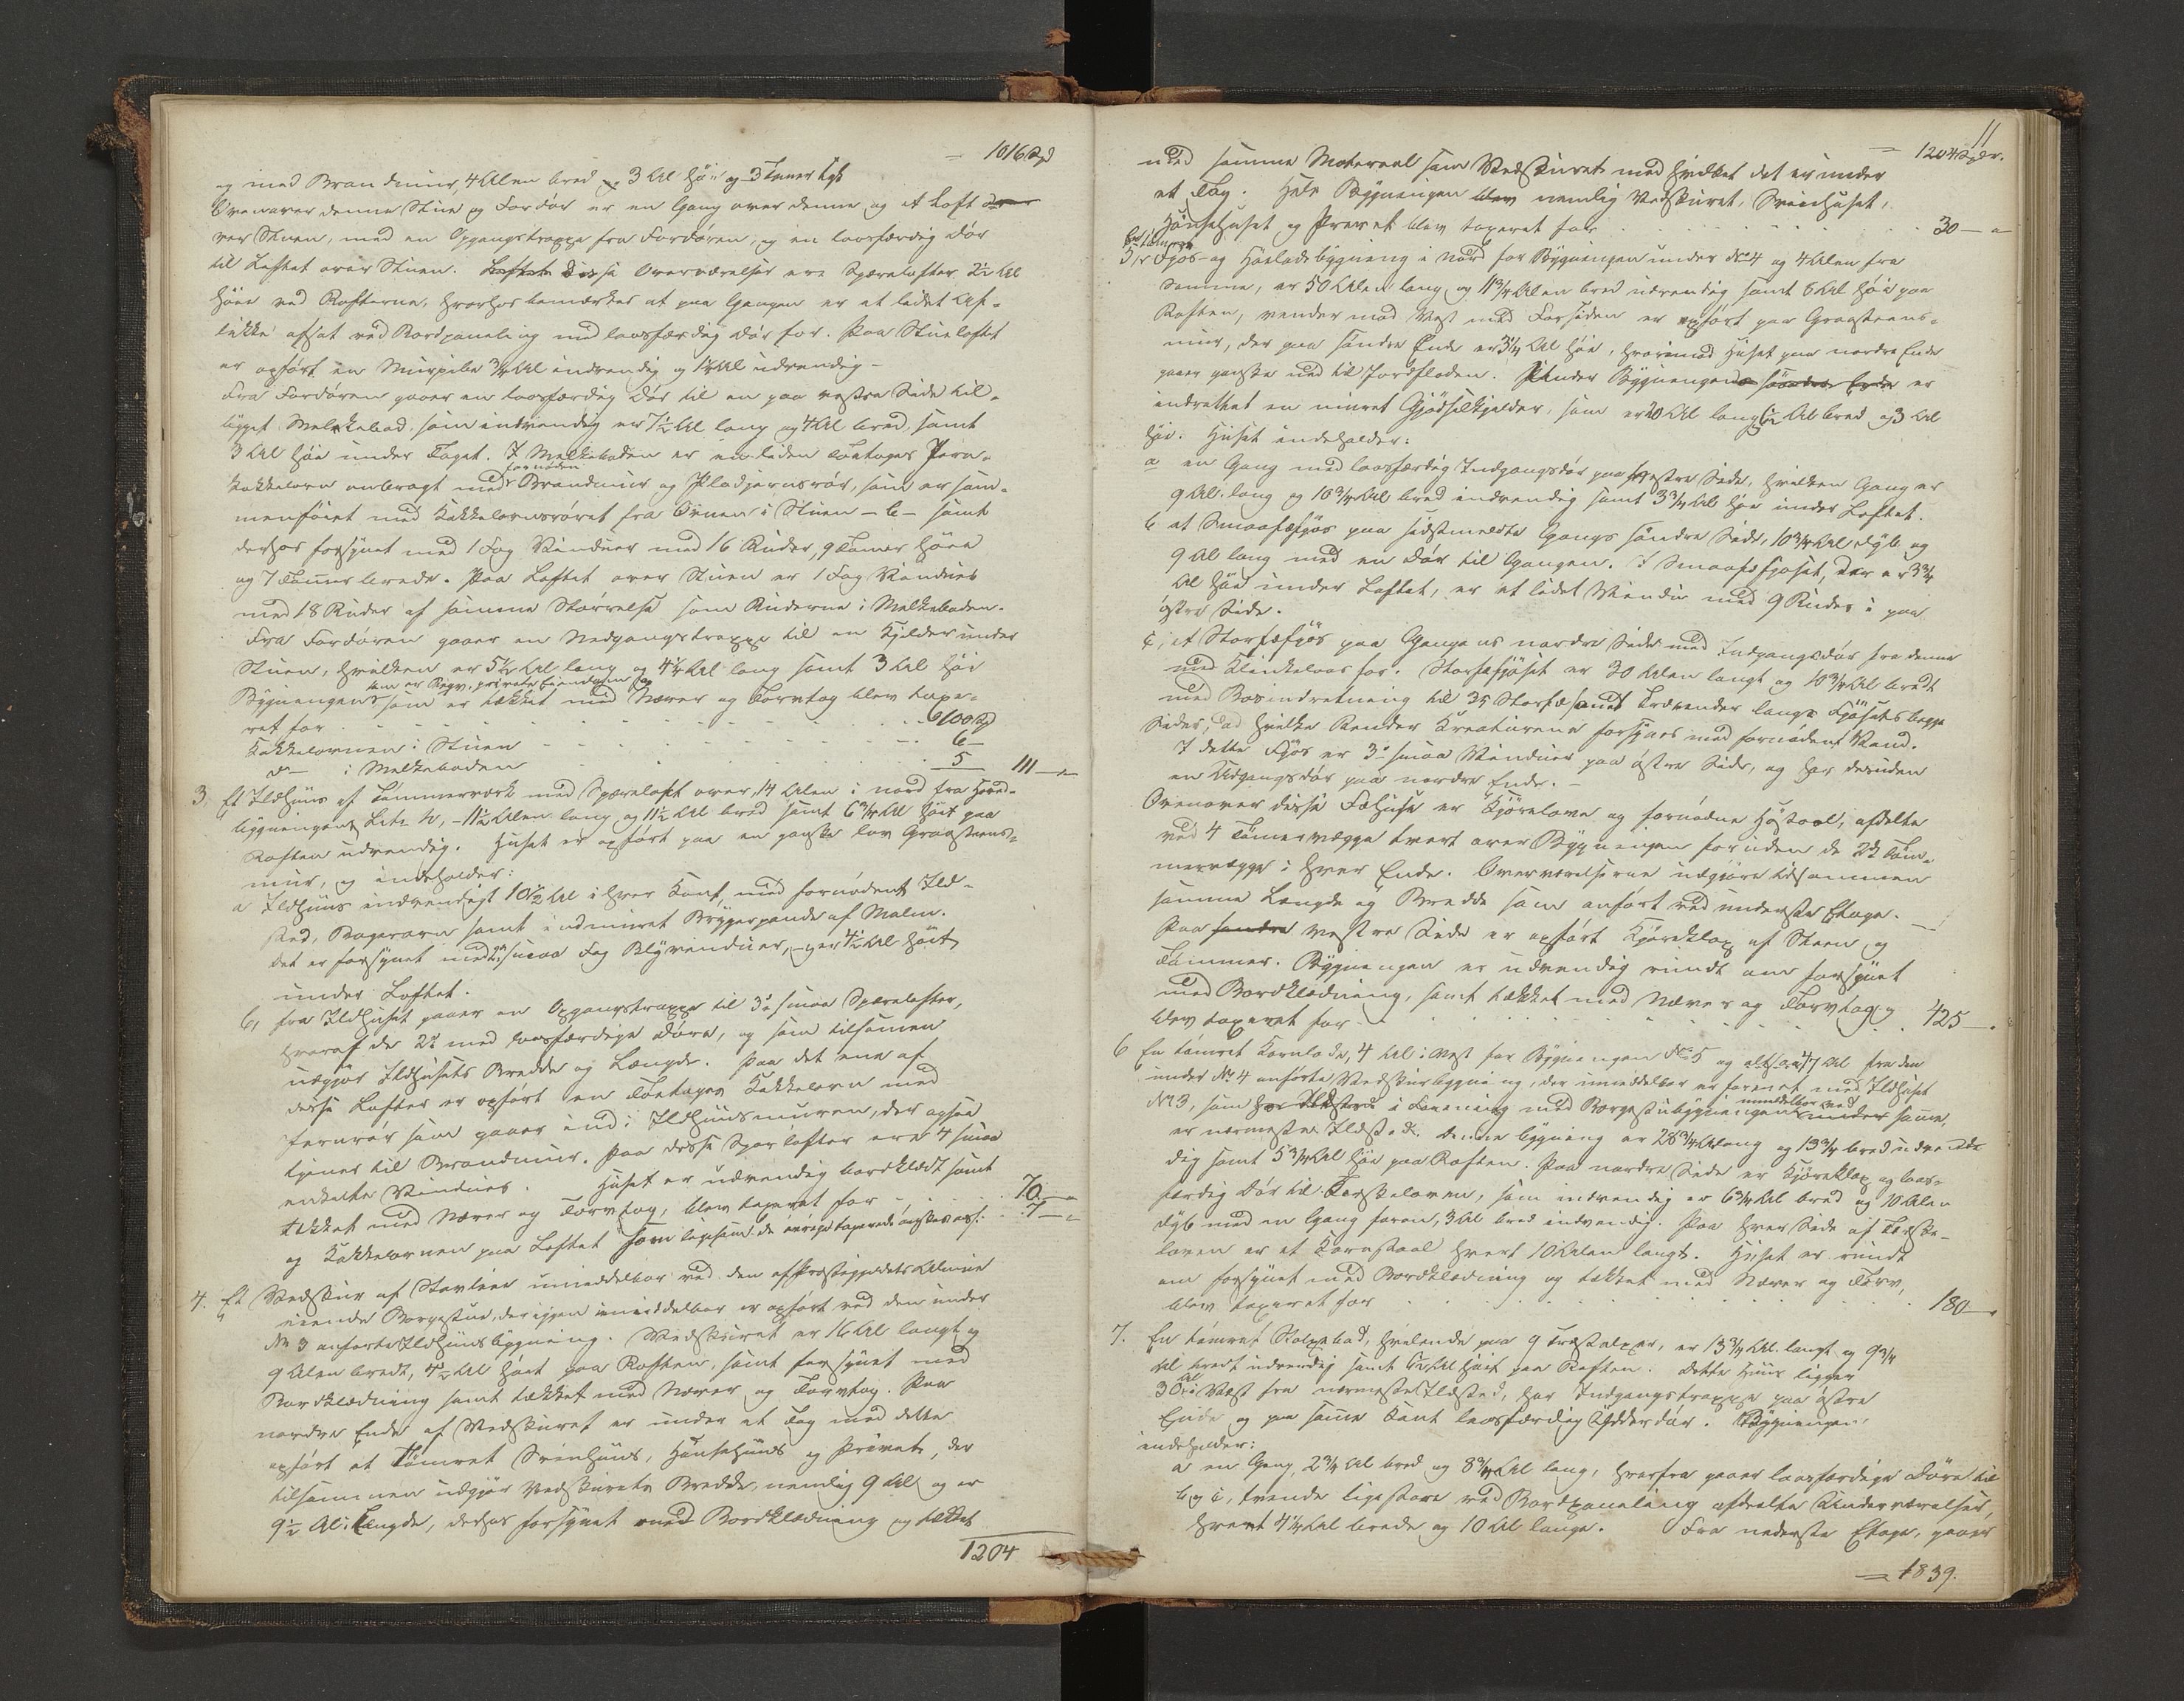 = 1016 Spd
og med Brandmuur, 4 Alen bred og 3 Al høi og 3 Tommer tyk
Ovenover denne Stue og Fordør er en Gang over denne og et Loft
over Stuen, med en Opgangstrappe fra Fordøren, og en laasfærdig Dör
til Loftet over Stuen. Loftet Disse Overværelser ere Sperelofter 2½ Al
høie ved Rafterne, hvorhos bemærkes at paa Gangen er et lidet Af-
lukke afsat ved Bordpaneling med laasfærdig Dör for. Paa Stueloftet
er opført en Muurpibe ¾ Al indvendig og 1¼ Al udvendig -
Fra Fordören gaaer en laasfærdig Dör til en paa vestre Side til-
bygget Melkebod, som indvendig er 7½ Al lang og 4 Al bred, samt
3 Al høi under Taget. I Melkeboden er en liden toetages Jern-
kakkelovn anbragt med fornøden Brandmuur og Pladejernsrør, som er sam-
menføiet med Kakkelovnsrøret fra Ovnen i Stuen - b - samt
derhos forsynet med 1 Fag Vinduer med 16 Ruder, 9 Tommer høie
og 7 Tommer brede. Paa Loftet over Stuen er 1 Fag Vinduer
med 18 Ruder af samme Størrelse som Ruderne i Melkeboden.
Fra Fordøren gaaer en Nedgangstrappe til en Kjelder under
Stuen, hvilken er 5½ Al lang og 4¼ Al lang samt 3 Al høi
som er Bygv. private Eiendom og
Bygningen som er tækket med Næver og Torvtag blev taxe-
ret for . . . . . . 100 Spd
Kakkelovnen i Stuen - - - 6 -
do i Melkeboden . . . 5 111 - "
3, Et Ildhuus af Tømmerværk med Spereloft over, 14 Alen i nord fra Hoved-
bygningen Litr. A, - 11½ Alen lang og 11½ Al bred samt 6¾ Al høit paa
Raften udvendig. Huset er opført paa en ganske lav Graasteens-
muur, og indeholder:
a Ildhuus indvendigt 10½ Al i hver Kant, med fornødent Ild-
sted, Bagerovn samt indmuret Bryggerpande af Malm.
Det er forsynet med 2 smaa Fag Blyvinduer, og er 4½ Al høit
under Loftet.
b, fra Ildhuset gaaer en Opgangstrappe til 3de smaa Sperelofter,
hvoraf de 2de med laasfærdige Døre, og som tilsammen
udgjør Ildhusets Bredde og Længde. Paa det ene af
disse Lofter er opført en toetages Kakkelovn med
Jernrør som gaaer ind i Ildhuusmuren, der ogsaa
tjener til Brandmuur. Paa disse Sperlofter ere 4 smaa
enkelte Vinduer. Huset er udvendig bordklædt samt
tækket med Næver og Torvtag, blev taxeret for - . . . 70 - "
og Kakkelovnen paa Loftet som ligesaa de øvrige taxerede . . 7 - "
4. Et Vedskuur af Stavliin umiddelbar ved den af Præstegjeldets Almue
eiende Borgestue, der igjen umiddelbar er opført ved den under
No 3 anførte Ildhuusbygning. Vedskuret er 16 Al langt og
9 Alen bredt, 4½ Al høit paa Raften, samt forsynet med
Bordklædning samt tækket med Næver og Torvtag. Paa
nordre Ende af Vedskuret er under et Tag med dette
opført et tømret Sviinhuus, Hønsehuus og Privet, der
tilsammen udgjør Vedskurets Bredde, nemlig 9 Al og er
9½ Al i Længde, derhos forsynet med Bordklædning og tækket
1204
11
= 1204 Spdr.
med samme Materiel som Vedskuret med hvilket det er under
et Tag. Hele Bygningen blev nemlig Vedskuret, Sviinhuset,
Hønsehuset og Privet blev taxeret for . . . . . 30 - "
5, En tømret Fjös- og Høeladebygning i Nord for Bygningen under No 4 og 4 Alen fra
samme, er 50 Alen lang og 11¾ Alen bred udvendig samt 8 Al høi paa
Raften, vender mod Vest med Forsiden er opført paa Graasteens-
muur, der paa søndre Ende er 3¼ Al høi, hvorimod Huset paa nordre Ende
gaaer ganske ned til Jordfladen. Under Bygningens søndre Ende er
indrettet en muret Gjødselkjelder, som er 20 Al lang 6½ Al bred og 3 Al
høi. Huset indeholder:
a en Gang med laasfærdig Indgangsdør paa vestre Side, hvilken Gang er
9 Al. lang og 10¾ Al bred indvendig samt 3¾ Al høi under Loftet.
b et Smaafæfjös paa sidstmeldte Gangs søndre Side, 10¾ Al dyb og
9 Al lang med en Dør til Gangen. I Smaafæfjøset, der er 3¾
Al høi under Loftet, er et lidet Vindue med 9 Ruder i paa
østre Side.
c, et Storfæfjös paa Gangens nordre Side med Indgangsdør fra denne
med Klinkelaas for. Storfæfjøset er 30 Alen langt og 10¾ Al bredt
med Baasindretning til 35 Storfæ samt Trærender langs Fjøsets begge
Sider, ved hvilke Render Kreaturene forsynes med fornødent Vand.
I dette Fjøs er 3de smaa Vinduer paa østre Side, og har desuden
en Udgangsdør paa nordre Ende. -
Ovenover disse Fæhuse er Kjørelove og fornødne Høstaal, afdelte
ved 4 Tømmervægge tvert over Bygningen foruden de 2de Tøm-
mervægge i hver Ende. Overværelserne udgjøre tilsammen
samme Længde og Bredde som anført ved underste Etage.
Paa søndre vestre Side er opført Kjøreklop af Steen og
Tømmer. Bygningen er udvendig rundt om forsynet
med Bordklædning, samt tækket med Næver og Torvtag og
blev taxeret for . . . . . . 425 - "
6 En tømret Kornlade, 4 Al i Vest for Bygningen No 5 og altsaa 4 Al fra den
under No 4 anførte Vedskurbygning, der umiddelbar er forenet med Ildhuset
No 3, som i Forening med Borgestubygningen umiddelbar ved samme,
er nærmeste Ildsted. Denne bygning er 28¾ Al lang og 13¾ bred udven-
dig samt 5¾ Al høi paa Raften. Paa nordre Side er Kjøreklop og laas-
færdig Dør til Tærskeloven, som indvendig er 6¾ Al bred og 10 Alen
dyb med en Gang foran, 3 Al bred indvendig. Paa hver Side af Tærske-
loven er et Kornstaal hvert 10 Alen langt. Huset er rundt
om forsynet med Bordklædning og tækket med Næver og Torv,
blev taxeret for . . . . . . 180 - "
7. En tømret Stolpebod, hvilende paa 9 Træstolper, er 13¾ Al. langt og 9¾
Al bredt udvendig samt 6½ Al høit paa Raften. Dette Huus ligger
30 Al i Vest fra nærmeste Ildsted, har Indgangstrappe paa østre
Ende og paa samme Kant laasfærdig Yderdør. Bygningen
indeholder:
a en Gang, 2¾ Al bred og 8¾ Al lang, hvorfra gaaer laasfærdige Døre til
b og c, tvende ligestore ved Bordpaneling afdeelte Underværelser,
hvert 4¼ Al brede og 10 Al lange. Fra nederste Etage, gaaer
= 1839.